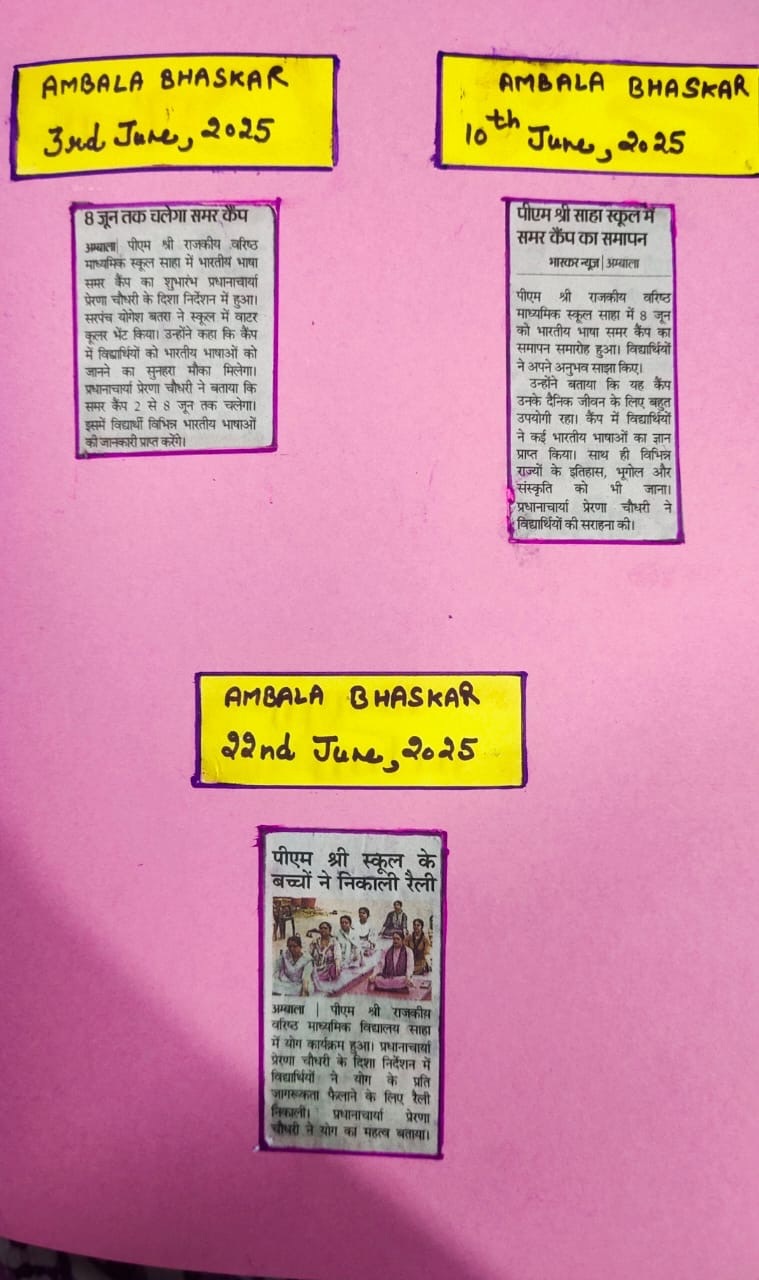 AMBALA BHASKAR
3rd June, 2025
8 जून तक चलेगा समर कैंप
अम्बाला| पीएम श्री राजकीय वरिष्ठ
माध्यमिक स्कूल साहा में भारतीय भाषा
समर कैंप का शुभारंभ प्रधानाचार्या
प्रेरणा चौधरी के दिशा निर्देशन में हुआ।
सरपंच योगेश बतरा ने स्कूल में वाटर
कूलर भेंट किया। उन्होंने कहा कि कैंप
में विद्यार्थियों को भारतीय भाषाओं को
जानने का सुनहरा मौका मिलेगा।
प्रधानाचार्या प्रेरणा चौधरी ने बताया कि
समर कैंप 2 से 8 जून तक चलेगा।
इसमें विद्यार्थी विभिन्न भारतीय भाषाओं
की जानकारी प्राप्त करेंगे।
AMBALA BHASKAR
10th June, 2025
पीएम श्री साहा स्कूल में
समर कैंप का समापन
भास्कर न्यूज | अम्बाला
पीएम श्री राजकीय वरिष्ठ
माध्यमिक स्कूल साहा में 8 जून
को भारतीय भाषा समर कैंप का
समापन समारोह हुआ। विद्यार्थियों
ने अपने अनुभव साझा किए।
उन्होंने बताया कि यह कैंप
उनके दैनिक जीवन के लिए बहुत
उपयोगी रहा। कैंप में विद्यार्थियों
ने कई भारतीय भाषाओं का ज्ञान
प्राप्त किया। साथ ही विभिन्न
राज्यों के इतिहास, भूगोल और
संस्कृति को भी जाना।
प्रधानाचार्या प्रेरणा चौधरी ने
विद्यार्थियों की सराहना की।
AMBALA BHASKAR
22nd June, 2025
पीएम श्री स्कूल के
बच्चों ने निकाली रैली
अम्बाला | पीएम श्री राजकीय
वरिष्ठ माध्यमिक विद्यालय साहा
में योग कार्यक्रम हुआ। प्रधानाचार्या
प्रेरणा चौधरी के दिशा निर्देशन में
विद्यार्थियों ने योग के प्रति
जागरूकता फैलाने के लिए रैली
निकाली। प्रधानाचार्या प्रेरणा
चौधरी ने योग का महत्व बताया।